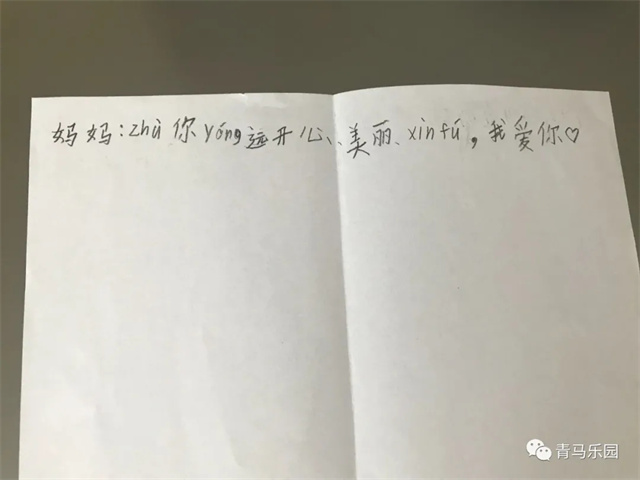 妈妈:zhù你yóng远开心、美丽、xìnfú,我爱你♡
青马乐园